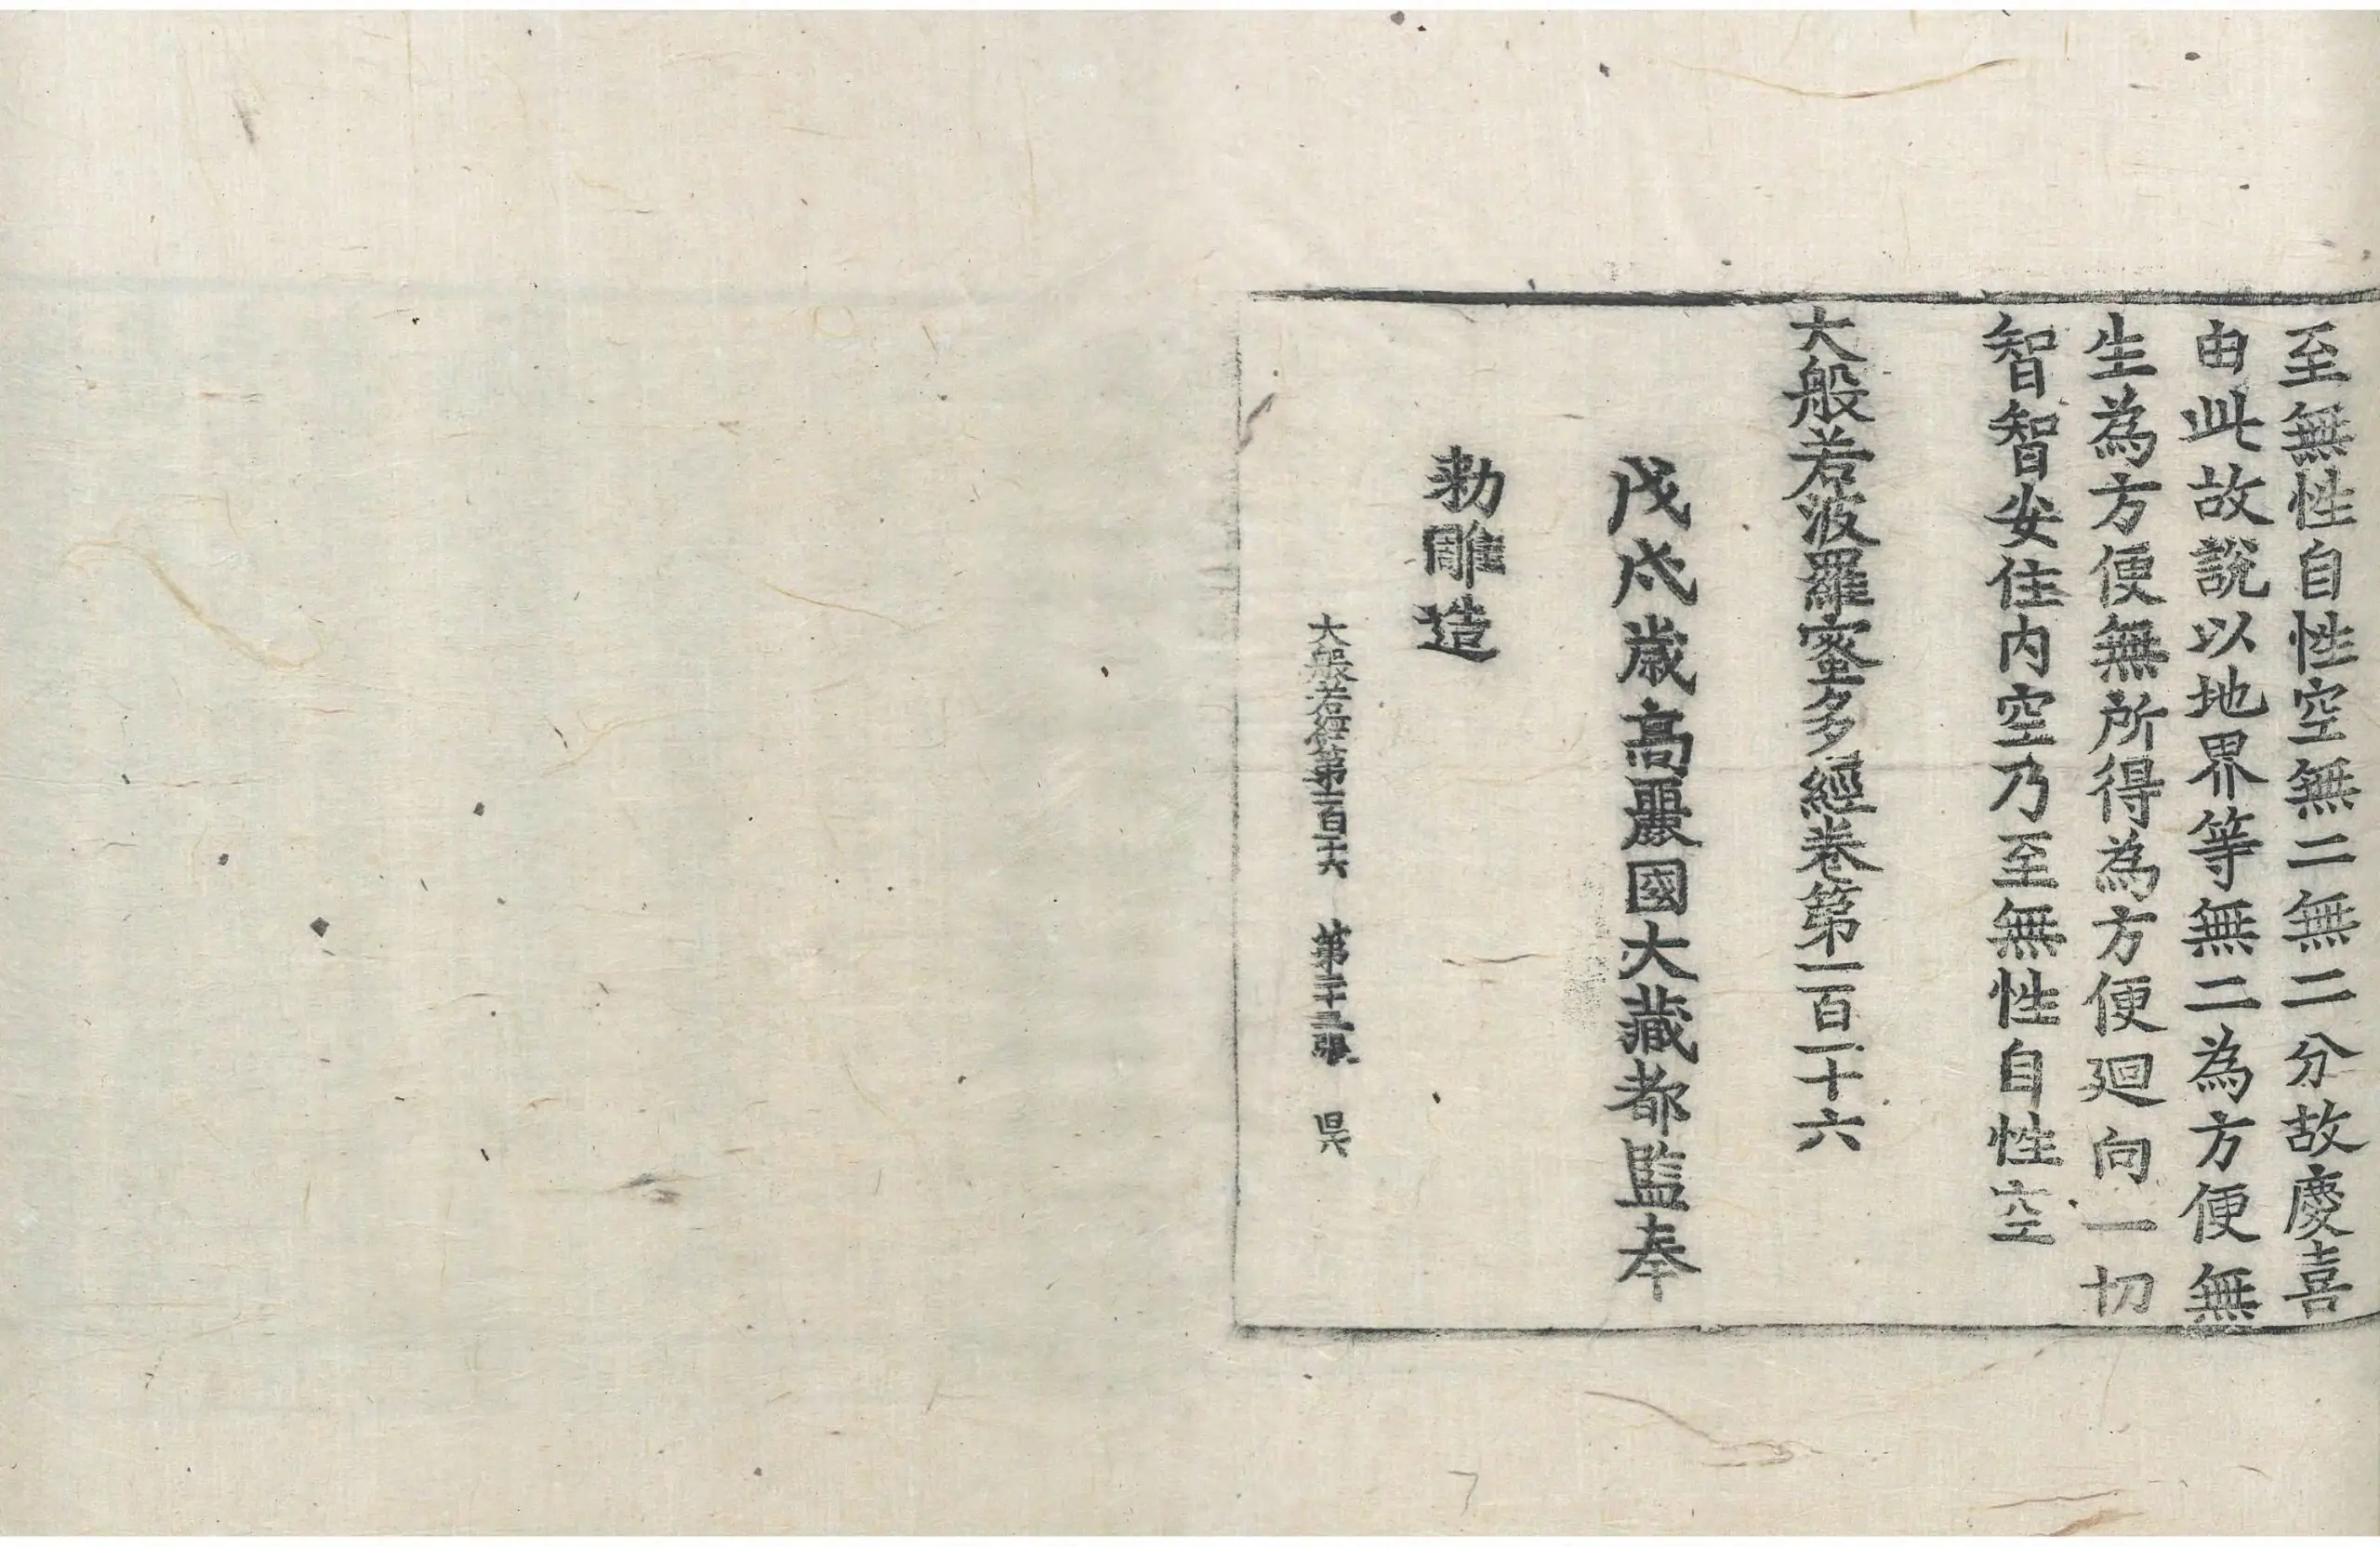 至無性自性空無二無二分故慶喜
由此故說以地界等無二為方便無
生為方便無所得為方便廻向一切
智智安住內空乃至無性自性空
大般若波羅蜜多經卷第一百一十六
戊戌歲高麗國大藏都監奉
勅雕造
大般若經第一百十六 第二十三張 昃